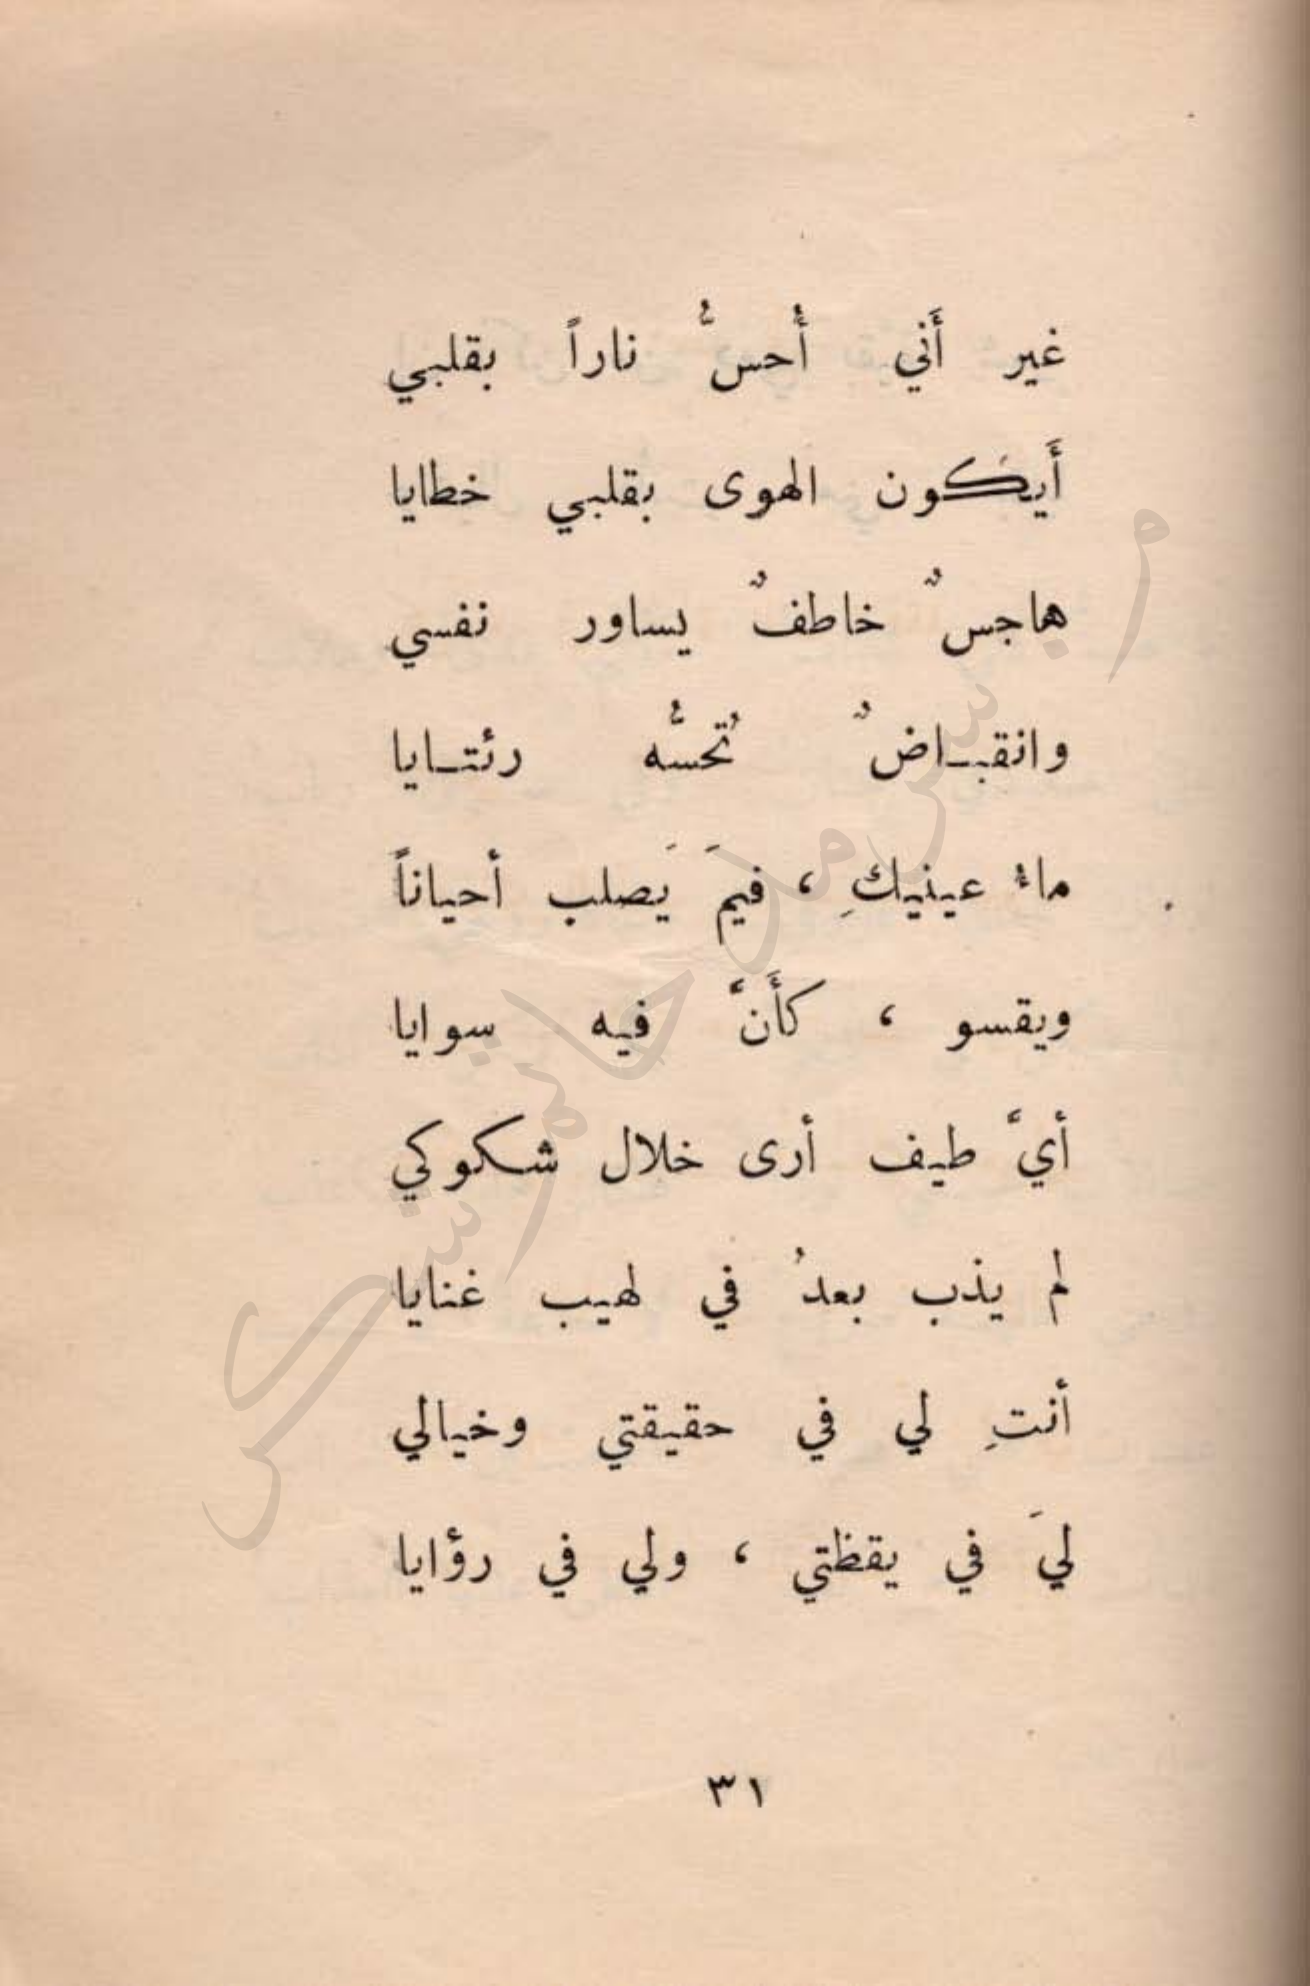 غير أَني أُحسُّ ناراً بقلبي
أَيكون الهوى بقلبي خطايا
هاجسٌ خاطفٌ يساور نفسي
وانقبـاضٌ تُحسُّه رئتـايا
ماءُ عينيكِ ، فيمَ يَصلب أحياناً
ويقسو ، كأَنَّ فيه سوايا
أيَّ طيف أرى خلال شكوكي
لم يذب بعدُ في لهيب غنايا
أنتِ لي في حقيقتي وخيالي
ليَ في يقظتي ، ولي في رؤايا
٣١